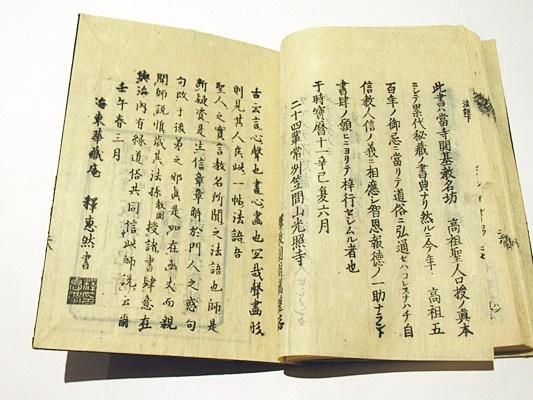 此書ハ當寺開基教名坊　高祖聖人口授ノ眞本
ニシテ累代秘藏ノ書典ナリ然ルニ今年ハ　高祖五
百年ノ御忌ニ當リテ道俗ニ弘通セハコレスナハチ自
信教人信ノ義ニ相應シ智恩報德ノ一助ナラント
書肆ノ願ヒニヨリテ梓行セシムル者也
于時寶曆十一辛巳夏六月
二十四輩常州笠間山光照寺
古云言心聲也畫心畫也善哉聲畫
則見其人矣此一帖法語
聖人之寶言教名所聞之法語也師是
斷疑資是生信章章解於門人之惑句
句改于後弟之邪眞是如在函丈而親
聞師說惟厥其法孫 授諸書肆意在
與治内有緣道俗共同信此師說云爾
壬午春三月
海東華嚴庵　釋惠然書